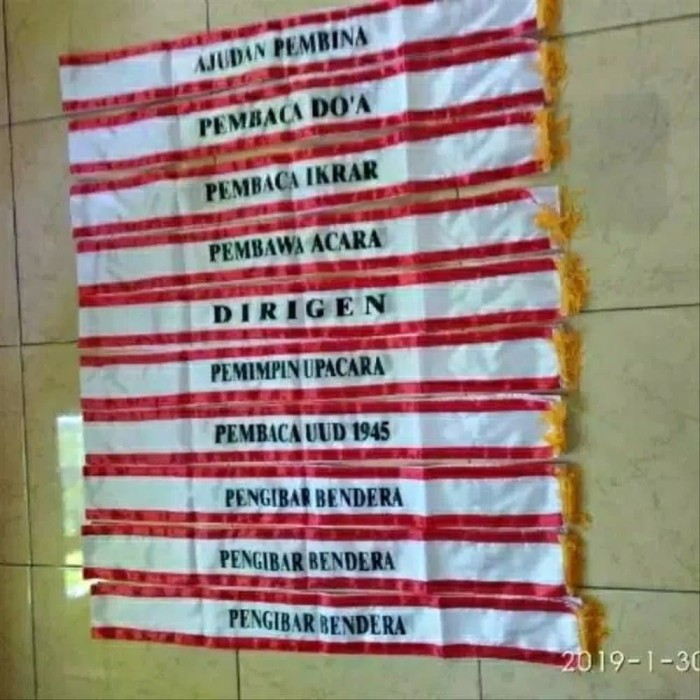 AJUDAN PEMBINA
PEMBACA DO'A
PEMBACA IKRAR
PEMBAWA ACARA
DIRIGEN
PEMIMPIN UPACARA
PEMBACA UUD 1945
PENGIBAR BENDERA
PENGIBAR BENDERA
PENGIBAR BENDERA
2019-1-30